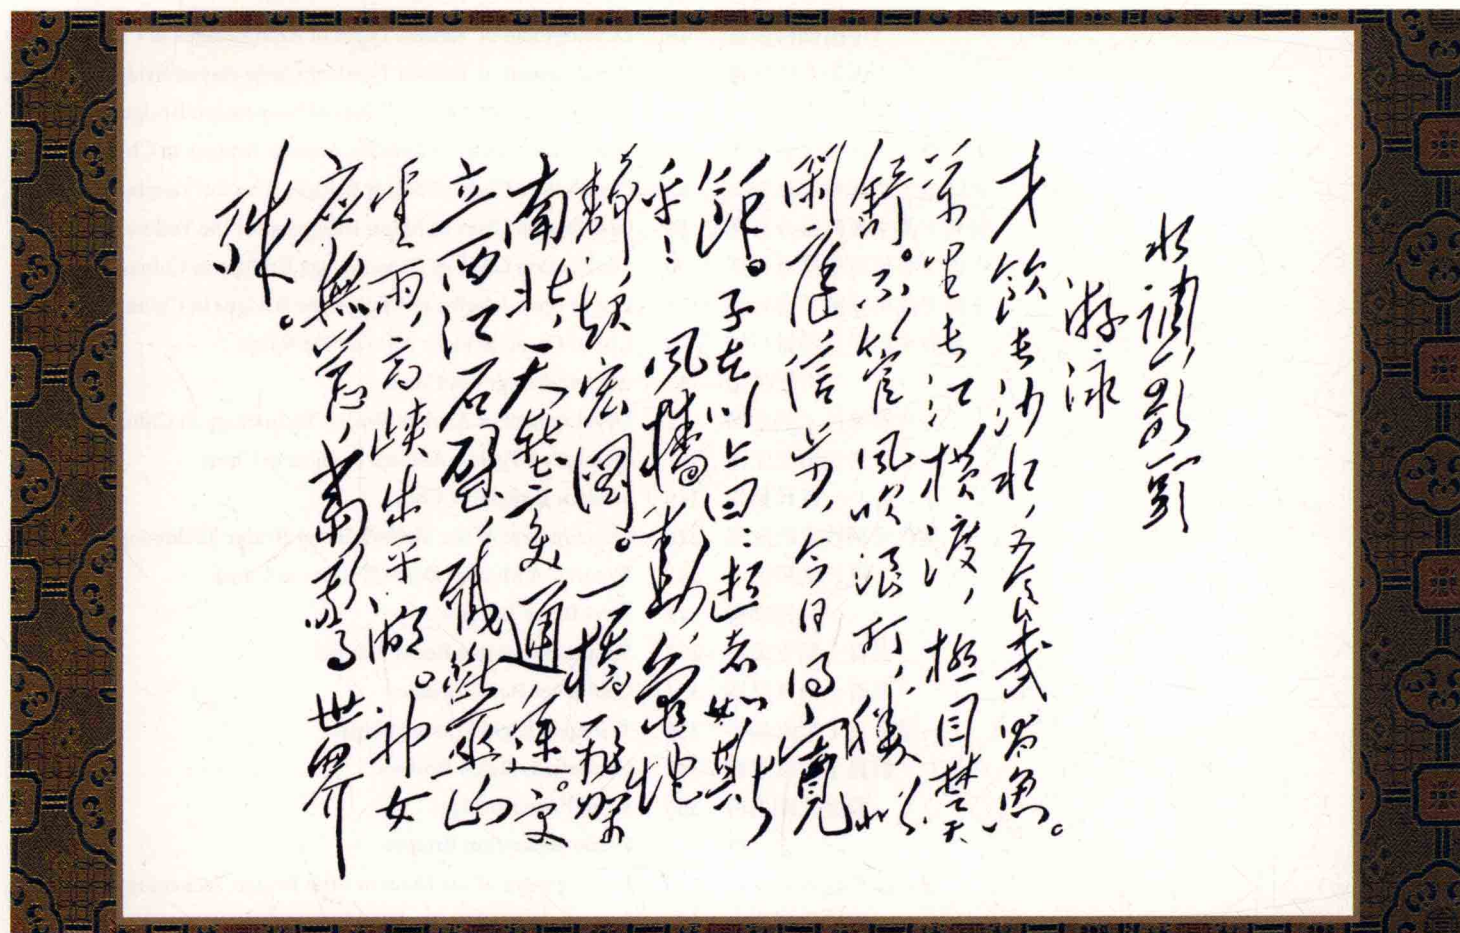 水調歌頭
游泳
才飲長沙水,又食武昌魚。
萬里長江橫渡,極目楚天
舒。不管風吹浪打,勝似
閑庭信步,今日得寬
餘。子在川上曰:逝者如斯
乎!風檣動,龜蛇
靜,起宏圖。一橋飛架
南北,天塹變通途。更
立西江石壁,截斷巫山
雲雨,高峽出平湖。神女
應無恙,當驚世界
殊。